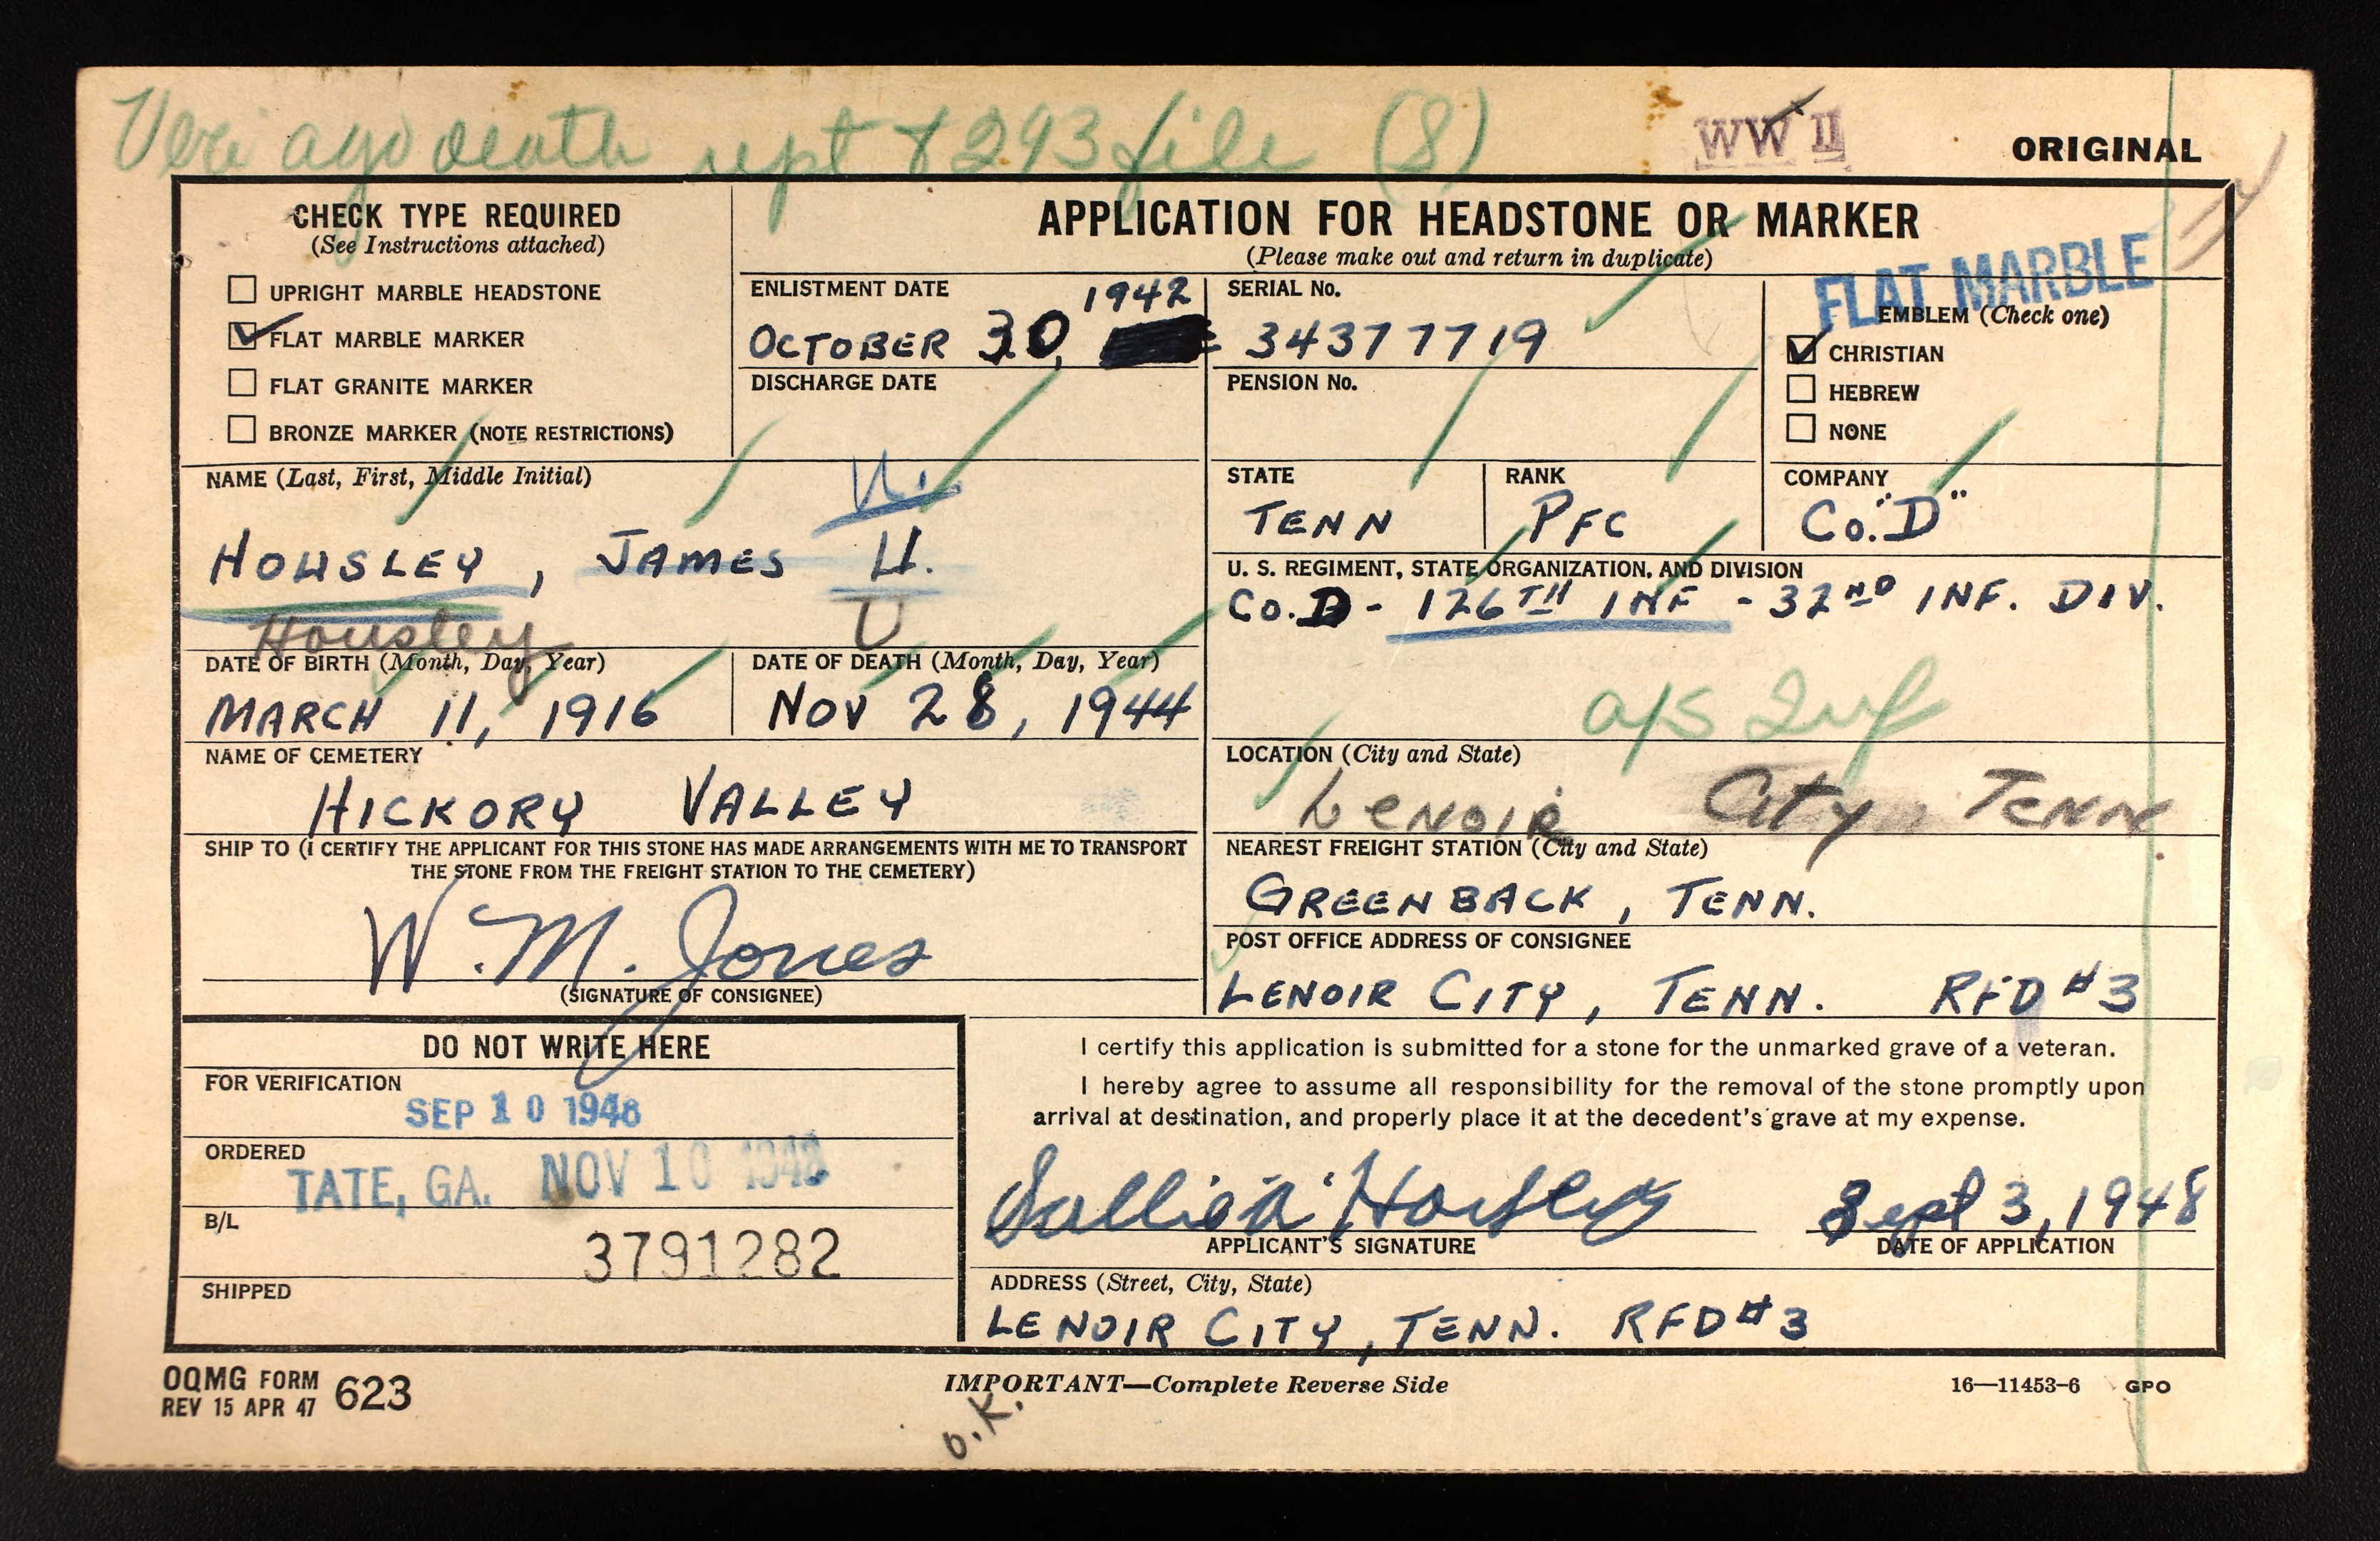 Veri ago death rept & 293 file (S)
WW II
ORIGINAL
CHECK TYPE REQUIRED
(See Instructions attached)
UPRIGHT MARBLE HEADSTONE
FLAT MARBLE MARKER
FLAT GRANITE MARKER
BRONZE MARKER (NOTE RESTRICTIONS)
APPLICATION FOR HEADSTONE OR MARKER
(Please make out and return in duplicate)
ENLISTMENT DATE
OCTOBER 30, 1942
DISCHARGE DATE
SERIAL No.
34377719
PENSION No.
FLAT MARBLE
EMBLEM (Check one)
CHRISTIAN
HEBREW
NONE
NAME (Last, First, Middle Initial)
U.
HOUSLEY, JAMES U.
Housley U
STATE
TENN
RANK
PFC
COMPANY
Co. "D"
U. S. REGIMENT, STATE ORGANIZATION, AND DIVISION
Co. D - 126TH INF - 32ND INF. DIV.
a/s Inf
DATE OF BIRTH (Month, Day, Year)
MARCH 11, 1916
DATE OF DEATH (Month, Day, Year)
NOV 28, 1944
NAME OF CEMETERY
HICKORY VALLEY
LOCATION (City and State)
Lenoir City Tenn
SHIP TO (I CERTIFY THE APPLICANT FOR THIS STONE HAS MADE ARRANGEMENTS WITH ME TO TRANSPORT
THE STONE FROM THE FREIGHT STATION TO THE CEMETERY)
W. M. Jones
(SIGNATURE OF CONSIGNEE)
NEAREST FREIGHT STATION (City and State)
GREENBACK, TENN.
POST OFFICE ADDRESS OF CONSIGNEE
LENOIR CITY, TENN. RFD #3
DO NOT WRITE HERE
FOR VERIFICATION
SEP 10 1948
ORDERED
TATE, GA. NOV 10 1948
B/L
3791282
SHIPPED
I certify this application is submitted for a stone for the unmarked grave of a veteran.
I hereby agree to assume all responsibility for the removal of the stone promptly upon
arrival at destination, and properly place it at the decedent's grave at my expense.
Sallie A Housley
APPLICANT'S SIGNATURE
Sept 3, 1948
DATE OF APPLICATION
ADDRESS (Street, City, State)
LENOIR CITY, TENN. RFD #3
OQMG FORM 623
REV 15 APR 47
IMPORTANT—Complete Reverse Side
16—11453-6 GPO
O.K.